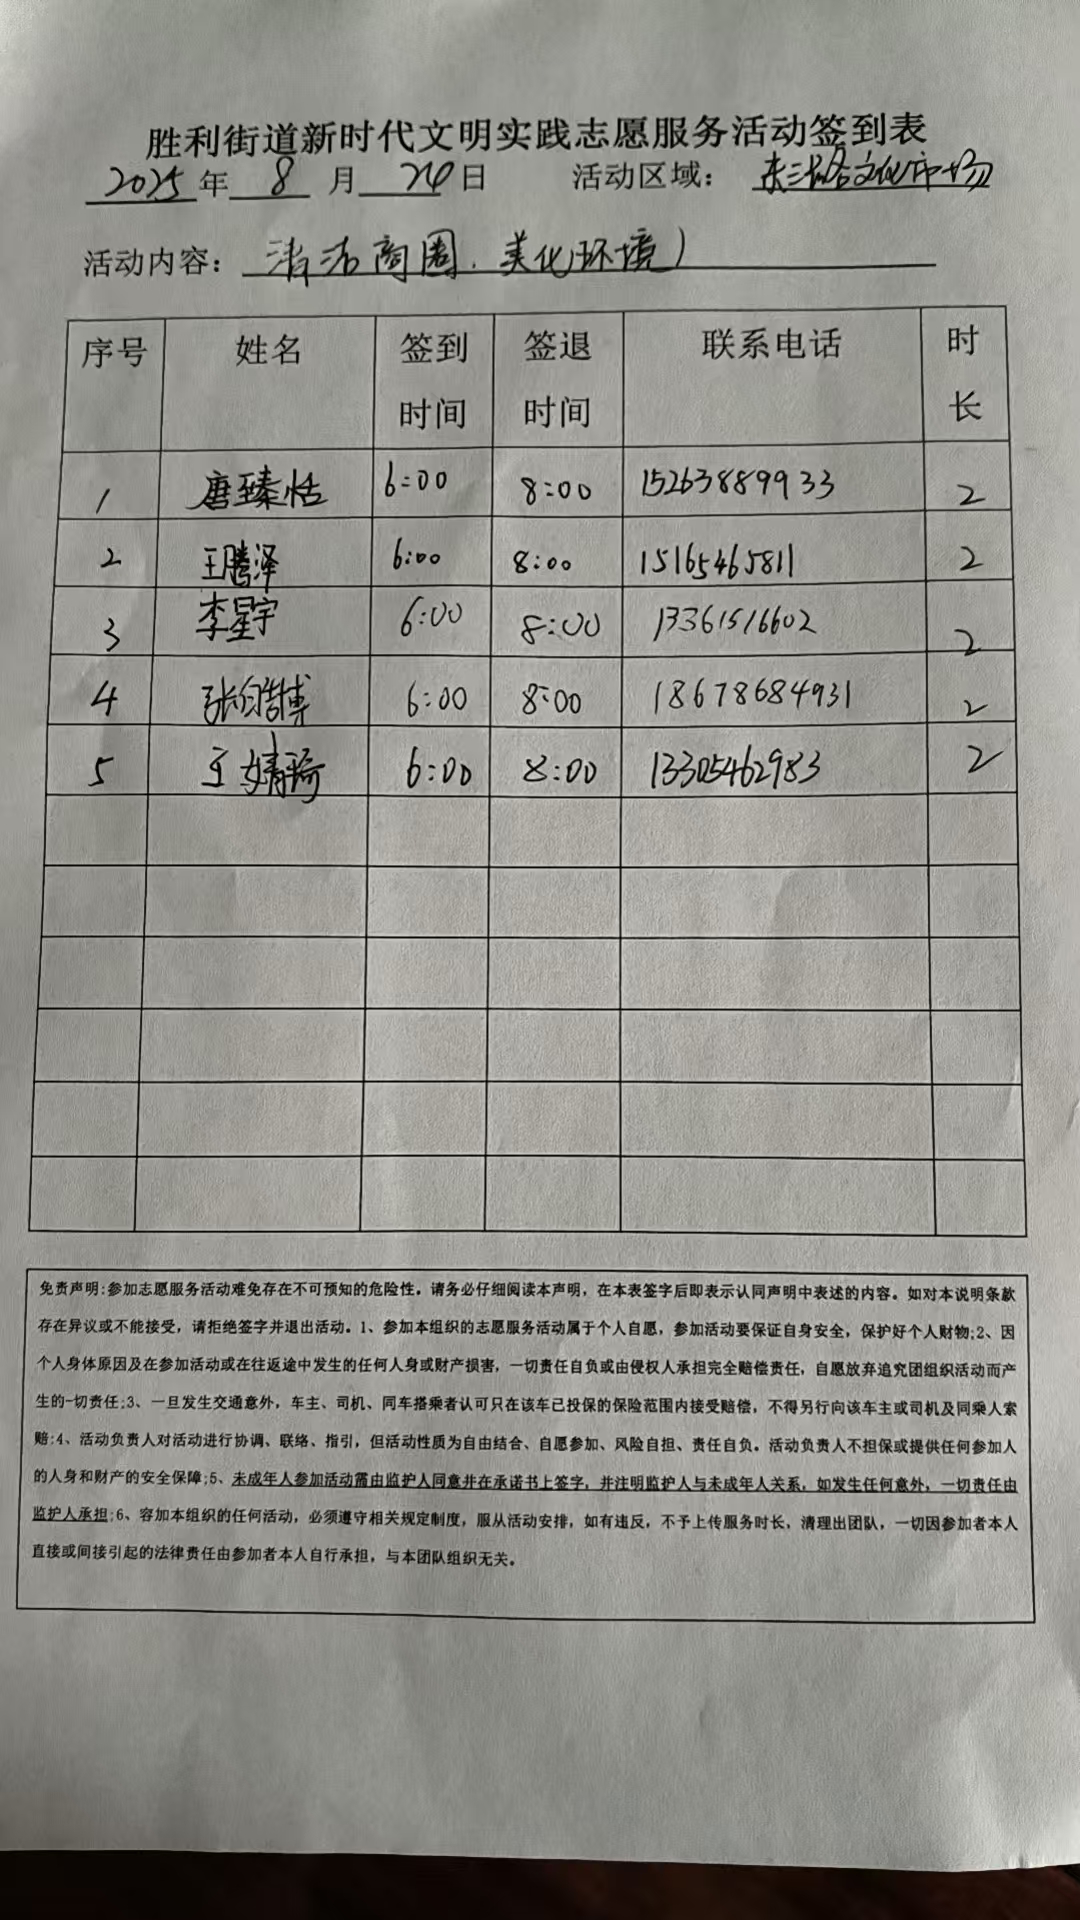 胜利街道新时代文明实践志愿服务活动签到表
2025年 8 月 24日 活动区域：东三路文化市场
活动内容：清洁商圈.美化环境)
序号 姓名 签到时间 签退时间 联系电话 时长
1 唐臻恬 6:00 8:00 15263889933 2
2 王腾泽 6:00 8:00 15165465811 2
3 李星宇 6:00 8:00 13361516602 2
4 张皓博 6:00 8:00 18678684931 2
5 王婧琦 6:00 8:00 13305462983 2
免责声明:参加志愿服务活动难免存在不可预知的危险性。请务必仔细阅读本声明，在本表签字后即表示认同声明中表述的内容。如对本说明条款
存在异议或不能接受，请拒绝签字并退出活动。1、参加本组织的志愿服务活动属于个人自愿，参加活动要保证自身安全，保护好个人财物;2、因
个人身体原因及在参加活动或在往返途中发生的任何人身或财产损害，一切责任自负或由侵权人承担完全赔偿责任，自愿放弃追究团组织活动而产
生的-切责任;3、一旦发生交通意外，车主、司机、同车搭乘者认可只在该车已投保的保险范围内接受赔偿，不得另行向该车主或司机及同乘人索
赔;4、活动负责人对活动进行协调、联络、指引，但活动性质为自由结合、自愿参加、风险自担、责任自负。活动负责人不担保或提供任何参加人
的人身和财产的安全保障;5、未成年人参加活动需由监护人同意并在承诺书上签字，并注明监护人与未成年人关系，如发生任何意外，一切责任由
监护人承担;6、容加本组织的任何活动，必须遵守相关规定制度，服从活动安排，如有违反，不予上传服务时长，清理出团队，一切因参加者本人
直接或间接引起的法律责任由参加者本人自行承担，与本团队组织无关。